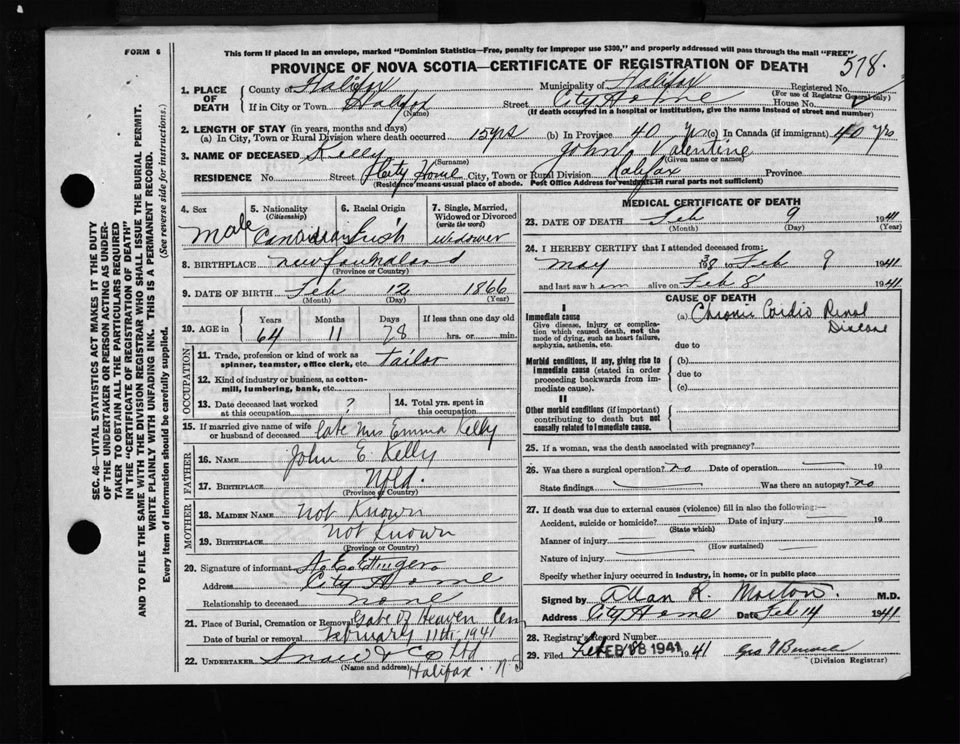 FORM 6
This form if placed in an envelope, marked "Dominion Statistics—Free, penalty for improper use $300," and properly addressed will pass through the mail "FREE"
578.
PROVINCE OF NOVA SCOTIA—CERTIFICATE OF REGISTRATION OF DEATH
SEC. 46—VITAL STATISTICS ACT MAKES IT THE DUTY
OF THE UNDERTAKER OR PERSON ACTING AS UNDER-
TAKER TO OBTAIN ALL THE PARTICULARS REQUIRED
IN THE "CERTIFICATE OF REGISTRATION OF DEATH"
AND TO FILE THE SAME WITH THE DIVISION REGISTRAR WHO SHALL ISSUE THE BURIAL PERMIT.
WRITE PLAINLY WITH UNFADING INK. THIS IS A PERMANENT RECORD.
Every item of information should be carefully supplied. (See reverse side for instructions.)
1. PLACE OF DEATH
County of Halifax Municipality of Halifax Registered No.
(For use of Registrar General only)
If in City or Town Halifax Street City Home House No.
(Name) (If death occurred in a hospital or institution, give the name instead of street and number)
2. LENGTH OF STAY (in years, months and days)
(a) In City, Town or Rural Division where death occurred 15 yrs (b) In Province 40 yrs (c) In Canada (if immigrant) 40 yrs
3. NAME OF DECEASED Kelly John Valentine
(Surname) (Given name or names)
RESIDENCE No. Street City Home City, Town or Rural Division Halifax Province
(Residence means usual place of abode. Post Office Address for residents in rural parts not sufficient)
4. Sex Male
5. Nationality (Citizenship) Canadian
6. Racial Origin Irish
7. Single, Married, Widowed or Divorced (write the word) Widower
8. BIRTHPLACE Newfoundland
(Province or Country)
9. DATE OF BIRTH Feb 12 1866
(Month) (Day) (Year)
10. AGE in Years Months Days If less than one day
64 11 28 hrs. or min.
OCCUPATION
11. Trade, profession or kind of work as spinner, teamster, office clerk, etc. Tailor
12. Kind of industry or business, as cotton-mill, lumbering, bank, etc.
13. Date deceased last worked at this occupation ?
14. Total yrs. spent in this occupation
15. If married give name of wife or husband of deceased late Mrs Emma Kelly
FATHER
16. NAME John E. Kelly
17. BIRTHPLACE Nfld.
(Province or Country)
MOTHER
18. MAIDEN NAME Not Known
19. BIRTHPLACE Not Known
(Province or Country)
20. Signature of informant A. E. Ettinger
Address City Home
Relationship to deceased none
21. Place of Burial, Cremation or Removal Gate of Heaven Cem
Date of burial or removal February 11th 1941
22. UNDERTAKER Snow & Co Ltd
(Name and address) Halifax. N.S
MEDICAL CERTIFICATE OF DEATH
23. DATE OF DEATH Feb 9 1941
(Month) (Day) (Year)
24. I HEREBY CERTIFY that I attended deceased from:
May 38 to Feb 9 1941
and last saw him alive on Feb 8 1941
CAUSE OF DEATH
I
Immediate cause
Give disease, injury or complication which caused death, not the mode of dying, such as heart failure, asphyxia, asthenia, etc.
(a) Chronic Cardio Renal Disease
due to
Morbid conditions, if any, giving rise to immediate cause (stated in order proceeding backwards from immediate cause).
(b)
due to
(c)
II
Other morbid conditions (if important) contributing to death but not causally related to immediate cause.
25. If a woman, was the death associated with pregnancy?
26. Was there a surgical operation? no Date of operation — 19
State findings — Was there an autopsy? no
27. If death was due to external causes (violence) fill in also the following:—
Accident, suicide or homicide? — Date of injury — 19
(State which)
Manner of injury —
(How sustained)
Nature of injury —
Specify whether injury occurred in industry, in home, or in public place
Signed by Allan R. Morton M.D.
Address City Home Date Feb 14 1941
28. Registrar's Record Number
29. Filed FEB 18 1941 1941
(Division Registrar)